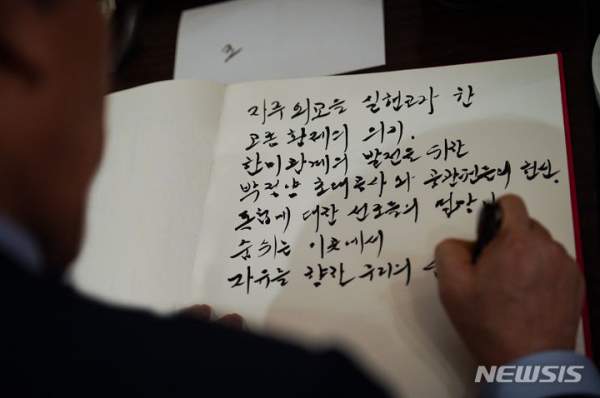 자주 외교를 실현코자 한
고종 황제의 의지.
한미관계의 발전을 위한
박정양 초대공사와 공관원들의 헌신.
독립에 대한 선조들의 열망이
숨쉬는 이곳에서
자유를 향한 우리의
NEWSIS